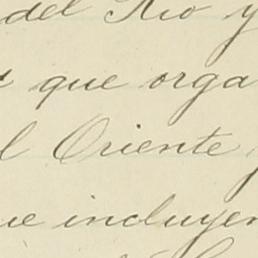 del Rio y
que orga
l Oriente
ue incluyen